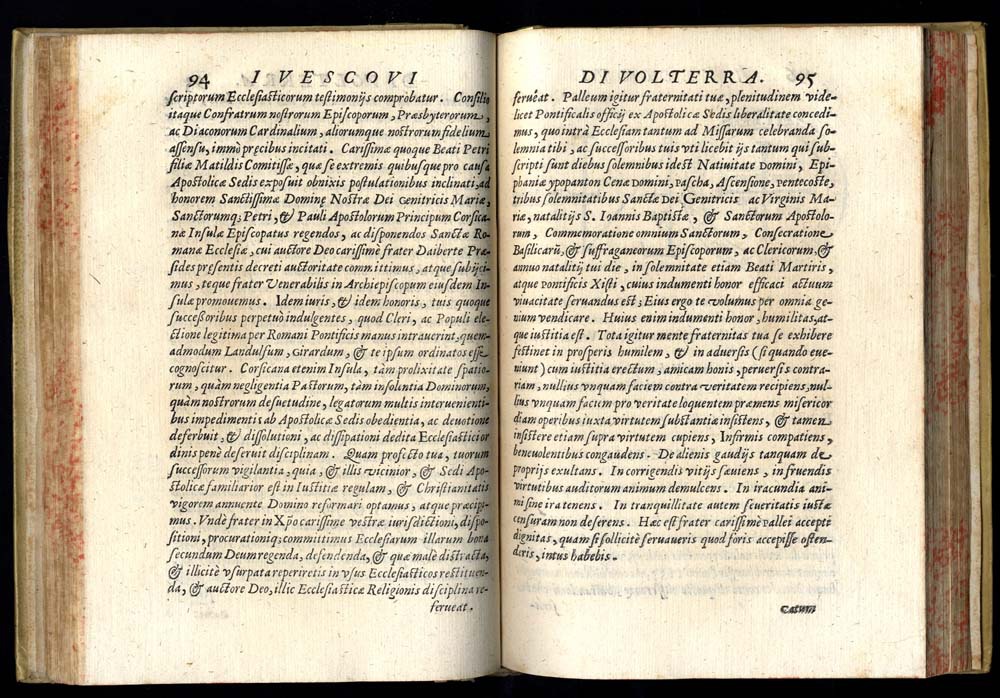 94 I VESCOVI
scriptorum Ecclesiasticorum testimonijs comprobatur. Consilio
itaque Confratrum nostrorum Episcoporum, Præsbyterorum,
ac Diaconorum Cardinalium, aliorumque nostrorum fidelium
assensu, immò precibus incitati. Carissimæ quoque Beati Petri
filiæ Matildis Comitissæ, quæ se extremis quibusque pro causa
Apostolicæ Sedis exposuit obnixis postulationibus inclinati, ad
honorem Sanctissimæ Dominę Nostræ Dei Genitricis Mariæ,
Sanctorumq; Petri, & Pauli Apostolorum Principum Corsica-
næ Insulæ Episcopatus regendos, ac disponendos Sanctæ Ro-
manæ Ecclesiæ, cui auctore Deo carissimè frater Daiberte Præ-
sides pręsentis decreti auctoritate committimus, atque subijci-
mus, teque frater Venerabilis in Archiepiscopum eiusdem In-
sulæ promouemus. Idem iuris, & idem honoris, tuis quoque
successoribus perpetuò indulgentes, quod Cleri, ac Populi ele-
ctione legitima per Romani Pontificis manus intrauerint, quem-
admodum Landulfum, Girardum, & te ipsum ordinatos esse
cognoscitur. Corsicana etenim Insula, tàm prolixitate spatio-
rum, quàm negligentia Pastorum, tàm insolentia Dominorum,
quàm nostrorum desuetudine, legatorum multis interuenienti-
bus impedimentis ab Apostolicæ Sedis obedientia, ac deuotione
deferbuit, & dissolutioni, ac dissipationi dedita Ecclesiastici or
dinis penè deseruit disciplinam. Quam profecto tua, tuorum
successorum vigilantia, quia, & illis vicinior, & Sedi Apo-
stolicæ familiarior est in Iustitiæ regulam, & Christianitatis
vigorem annuente Domino reformari optamus, atque præcipi-
mus. Vndè frater in Xp̃o carissime vestræ iurisdictioni, dispo-
sitioni, procurationiq; committimus Ecclesiarum illarum bona
secundum Deum regenda, defendenda, & quæ malè distracta,
& illicitè vsurpata reperiretis in vsus Ecclesiasticos restituen-
da, & auctore Deo, illic Ecclesiasticæ Religionis disciplina re-
ferueat.
DI VOLTERRA. 95
ferueat. Palleum igitur fraternitati tuæ, plenitudinem vide-
licet Pontificalis officij ex Apostolicæ Sedis liberalitate concedi-
mus, quo intrà Ecclesiam tantum ad Missarum celebranda so-
lemnia tibi, ac successoribus tuis vti licebit ijs tantum qui sub-
scripti sunt diebus solemnibus idest Natiuitate Domini, Epi-
phaniæ ypopanton Cenæ Domini, Pascha, Ascensione, Pentecoste,
tribus solemnitatibus Sanctæ Dei Genitricis ac Virginis Ma-
riæ, natalitijs S. Ioannis Baptistæ, & Sanctorum Apostolo-
rum, Commemoratione omnium Sanctorum, Consecratione
Basilicarũ, & suffraganeorum Episcoporum, ac Clericorum, &
annuo natalitij tui die, in solemnitate etiam Beati Martiris,
atque Pontificis Xisti, cuius indumenti honor efficaci actuum
viuacitate seruandus est; Eius ergo te volumus per omnia ge-
nium vendicare. Huius enim indumenti honor, humilitas, at-
que iustitia est. Tota igitur mente fraternitas tua se exhibere
festinet in prosperis humilem, & in aduersis (si quando eue-
niunt) cum iustitia erectum, amicam bonis, peruersis contra-
riam, nullius vnquam faciem contra veritatem recipiens, nul-
lius vnquam facium pro veritate loquentem præmens misericor
diam operibus iuxta virtutem substantiæ insistens, & tamen
insistere etiam supra virtutem cupiens, Infirmis compatiens,
beneuolentibus congaudens. De alienis gaudijs tanquam de
proprijs exultans. In corrigendis vitijs sæuiens, in fruendis
virtutibus auditorum animum demulcens. In iracundia ani-
mi sine ira tenens. In tranquillitate autem seueritatis iustæ
censuram non deserens. Hæc est frater carissimè pallei accepti
dignitas, quam si sollicitè seruaueris quod foris accepisse osten-
deris, intus habebis.
Catum